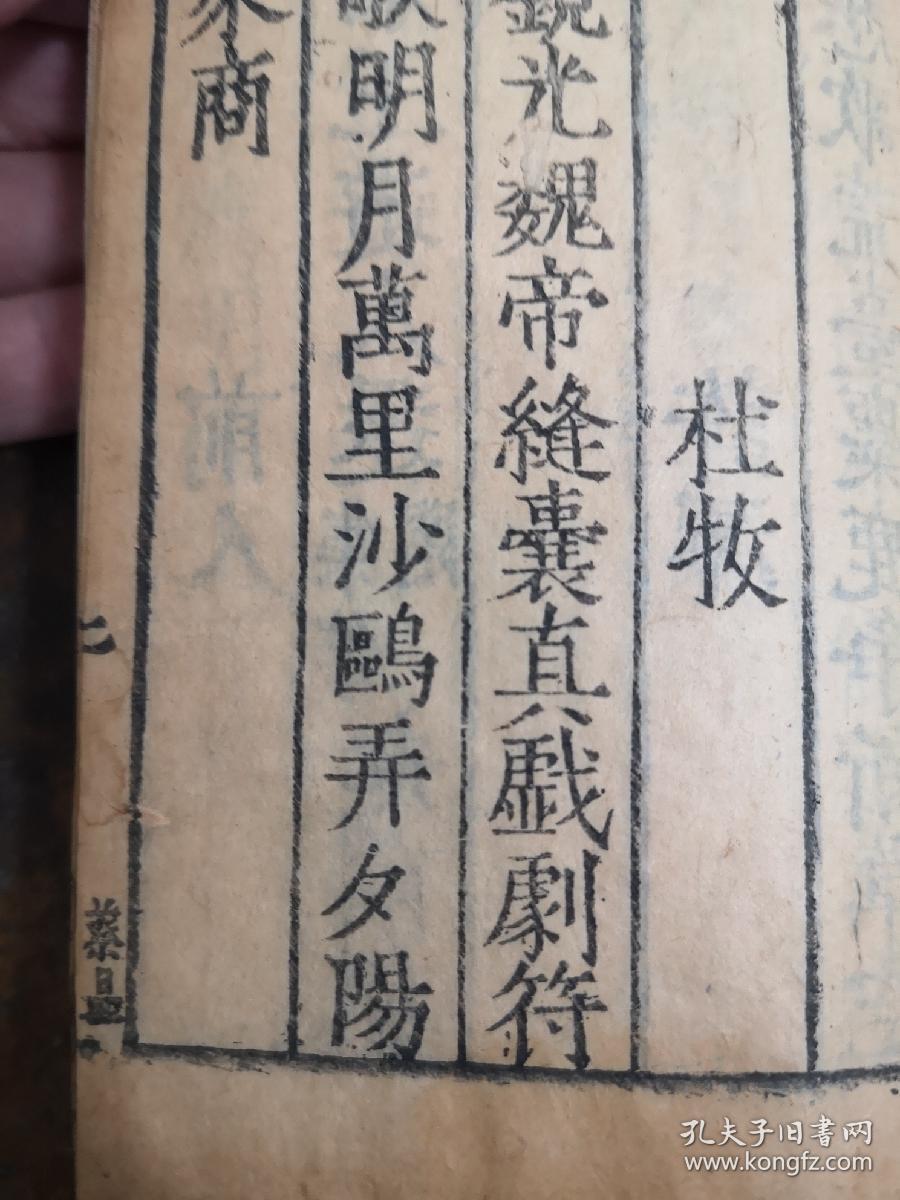 杜牧
銳光魏帝縫囊真戲劇符
歌明月萬里沙鷗弄夕陽
家商
前人
二
蔡晶
孔夫子旧书网
www.kongfz.com